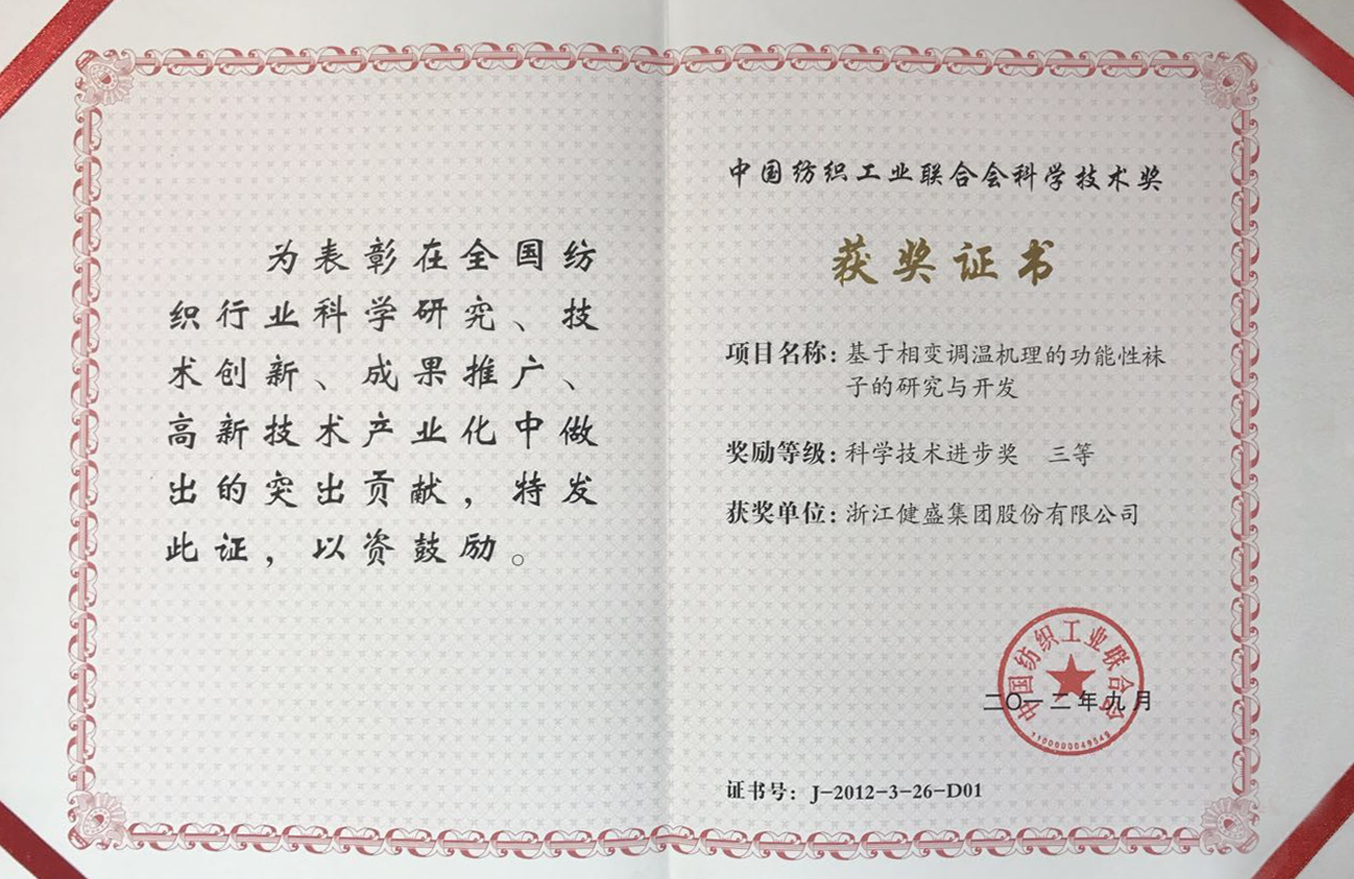 为表彰在全国纺
织行业科学研究、技
术创新、成果推广、
高新技术产业化中做
出的突出贡献，特发
此证，以资鼓励。
中国纺织工业联合会科学技术奖
获奖证书
项目名称：基于相变调温机理的功能性袜
子的研究与开发
奖励等级：科学技术进步奖　三等
获奖单位：浙江健盛集团股份有限公司
中国纺织工业联合会
二〇一二年九月
1100000049549
证书号：J-2012-3-26-D01